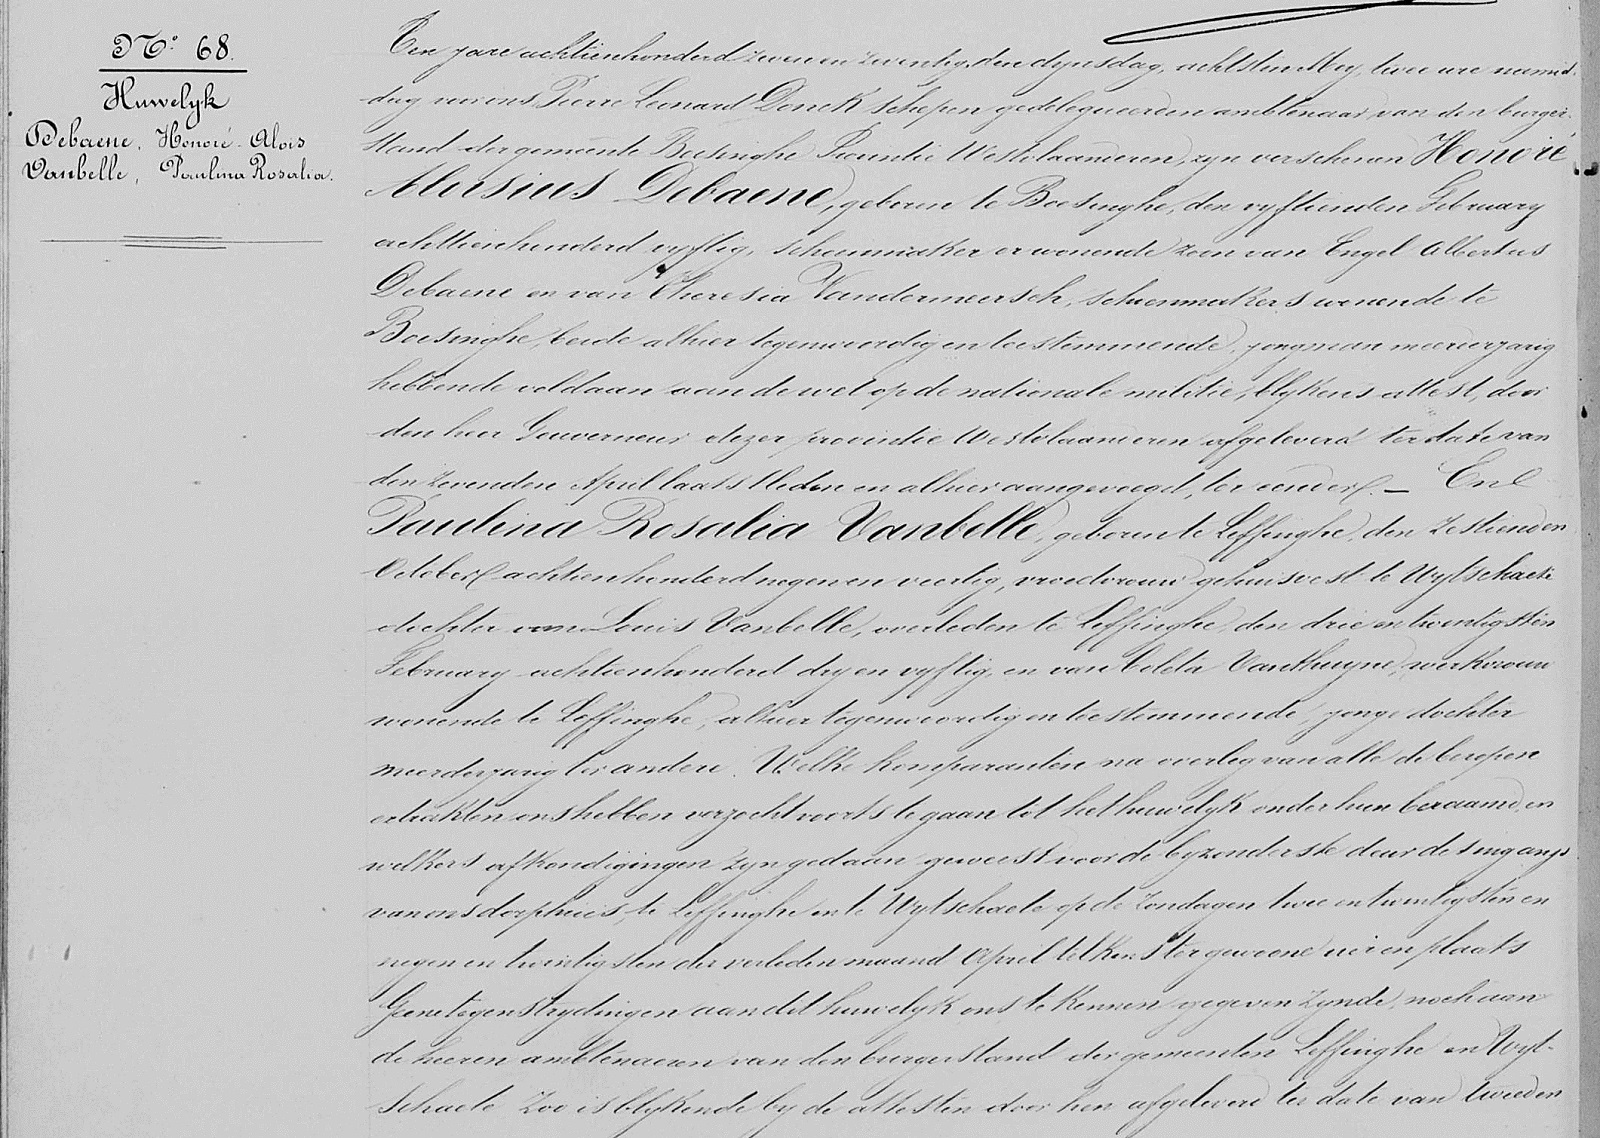 N.° 68.
Huwelyk
Debaene, Honoré-Alois
Vanbelle, Paulina Rosalia.
Ten jare achttienhonderd zeven en zeventig, den dynsdag, achtsten Mey, twee ure namid-
dag voor ons Pierre Leonard Donck schepen gedelegueerden ambtenaar van den burger-
stand der gemeente Boesinghe Provintie Westvlaanderen, zyn verschenen Honoré
Aloisius Debaene, geboren te Boesinghe, den vyftienden February
achttienhonderd vyftig, schoenmaker er wonende zoon van Engel Albertus
Debaene en van Theresia Vandermeersch, schoenmakers wonende te
Boesinghe, beide alhier tegenwoordig en toestemmende, jongman meerderjarig
hebbende voldaan aan de wet op de nationale militie, blykens attest, door
den heer Gouverneur dezer provintie Westvlaanderen afgeleverd ter date van
den zevenden April laatstleden en alhier aangevoegd, ter eender. — En
Paulina Rosalia Vanbelle, geboren te Leffinghe, den zestienden
October achttienhonderd negen en veertig, vroedvrouw gehuisvest te Wytschaete
dochter van Louis Vanbelle, overleden te Leffinghe, den drie en twintigsten
February achttienhonderd dry en vyftig, en van Coleta Vanthuyne, werkvrouw
wonende te Leffinghe, alhier tegenwoordig en toestemmende, jonge dochter
meerderjarig ter andere. Welke komparanten na overleg van alle de beropene
ons hebben verzocht voorts te gaan tot het huwelyk onder hun beraamd, en
welkers afkondigingen zyn gedaan geweest voor de byzonderste deur des ingangs
van ons dorphuis, te Leffinghe en te Wytschaete op de Zondagen twee en twintigsten en
negen en twintigsten der verleden maand April telkens ter gewoone uer en plaats
Geene tegenstrydingen aan dit huwelyk ons te kennen gegeven zynde, noch aan
de heeren ambtenaeren van den burgerstand der gemeenten Leffinghe en Wyt-
schaete zoo is blykende by de attesten door hen afgeleverd ter date van tweeden